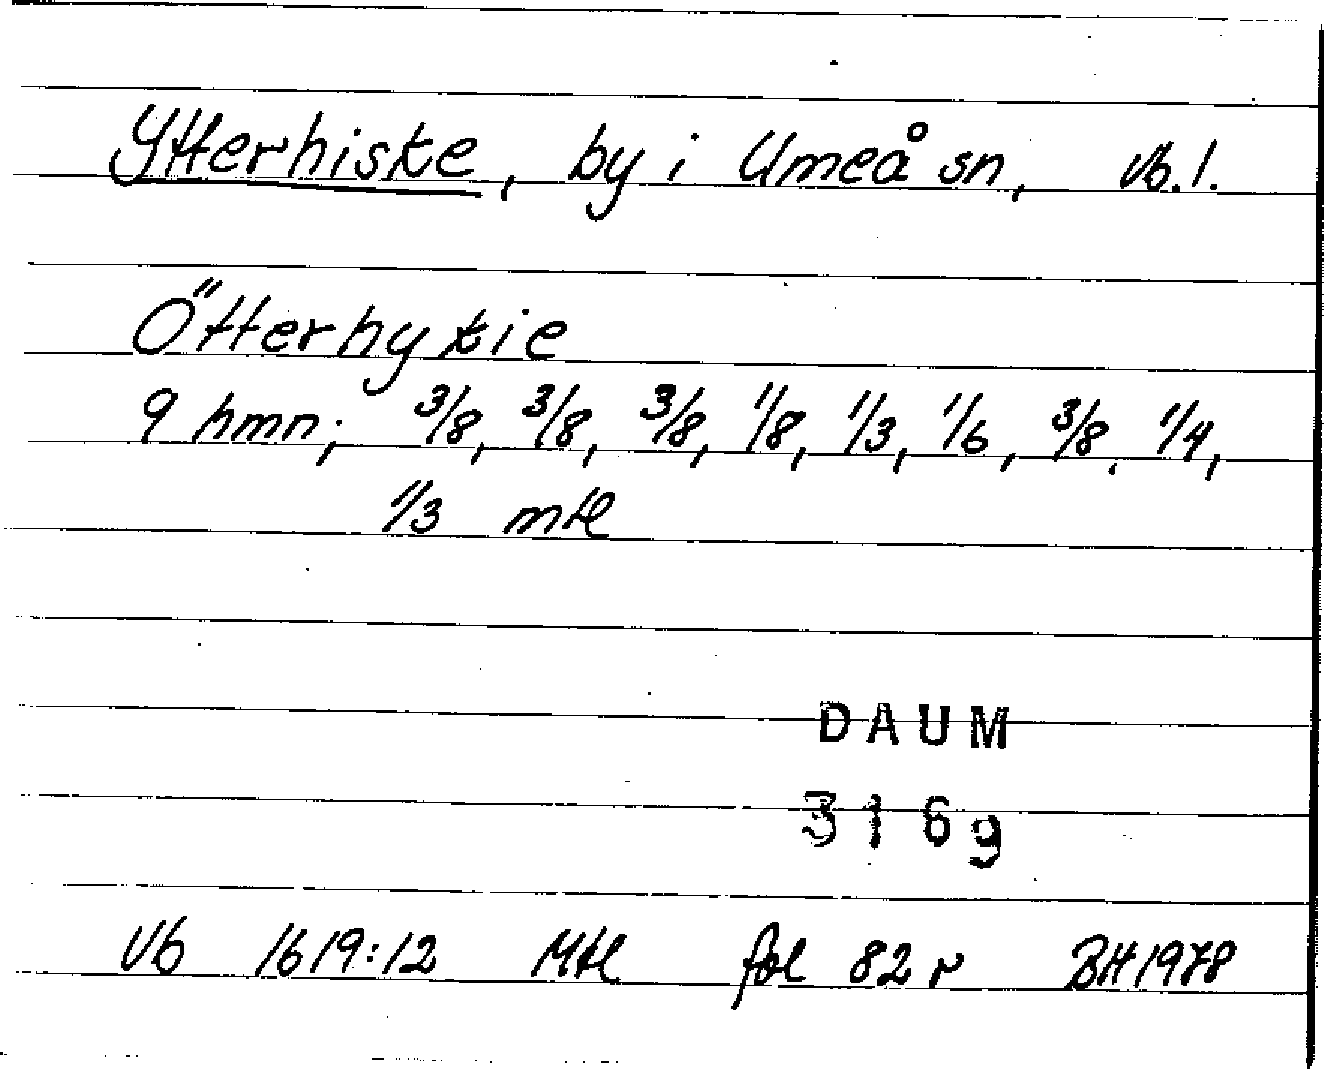 Ytterhiske, by i Umeå sn, Vb. l.
Ötterhykie
9 hmn; 3/8, 3/8, 3/8, 1/8, 1/3, 1/6, 3/8, 1/4,
1/3 mtl
DAUM
3169
Vb 1619:12 Mtl fol 82 r BH 1978